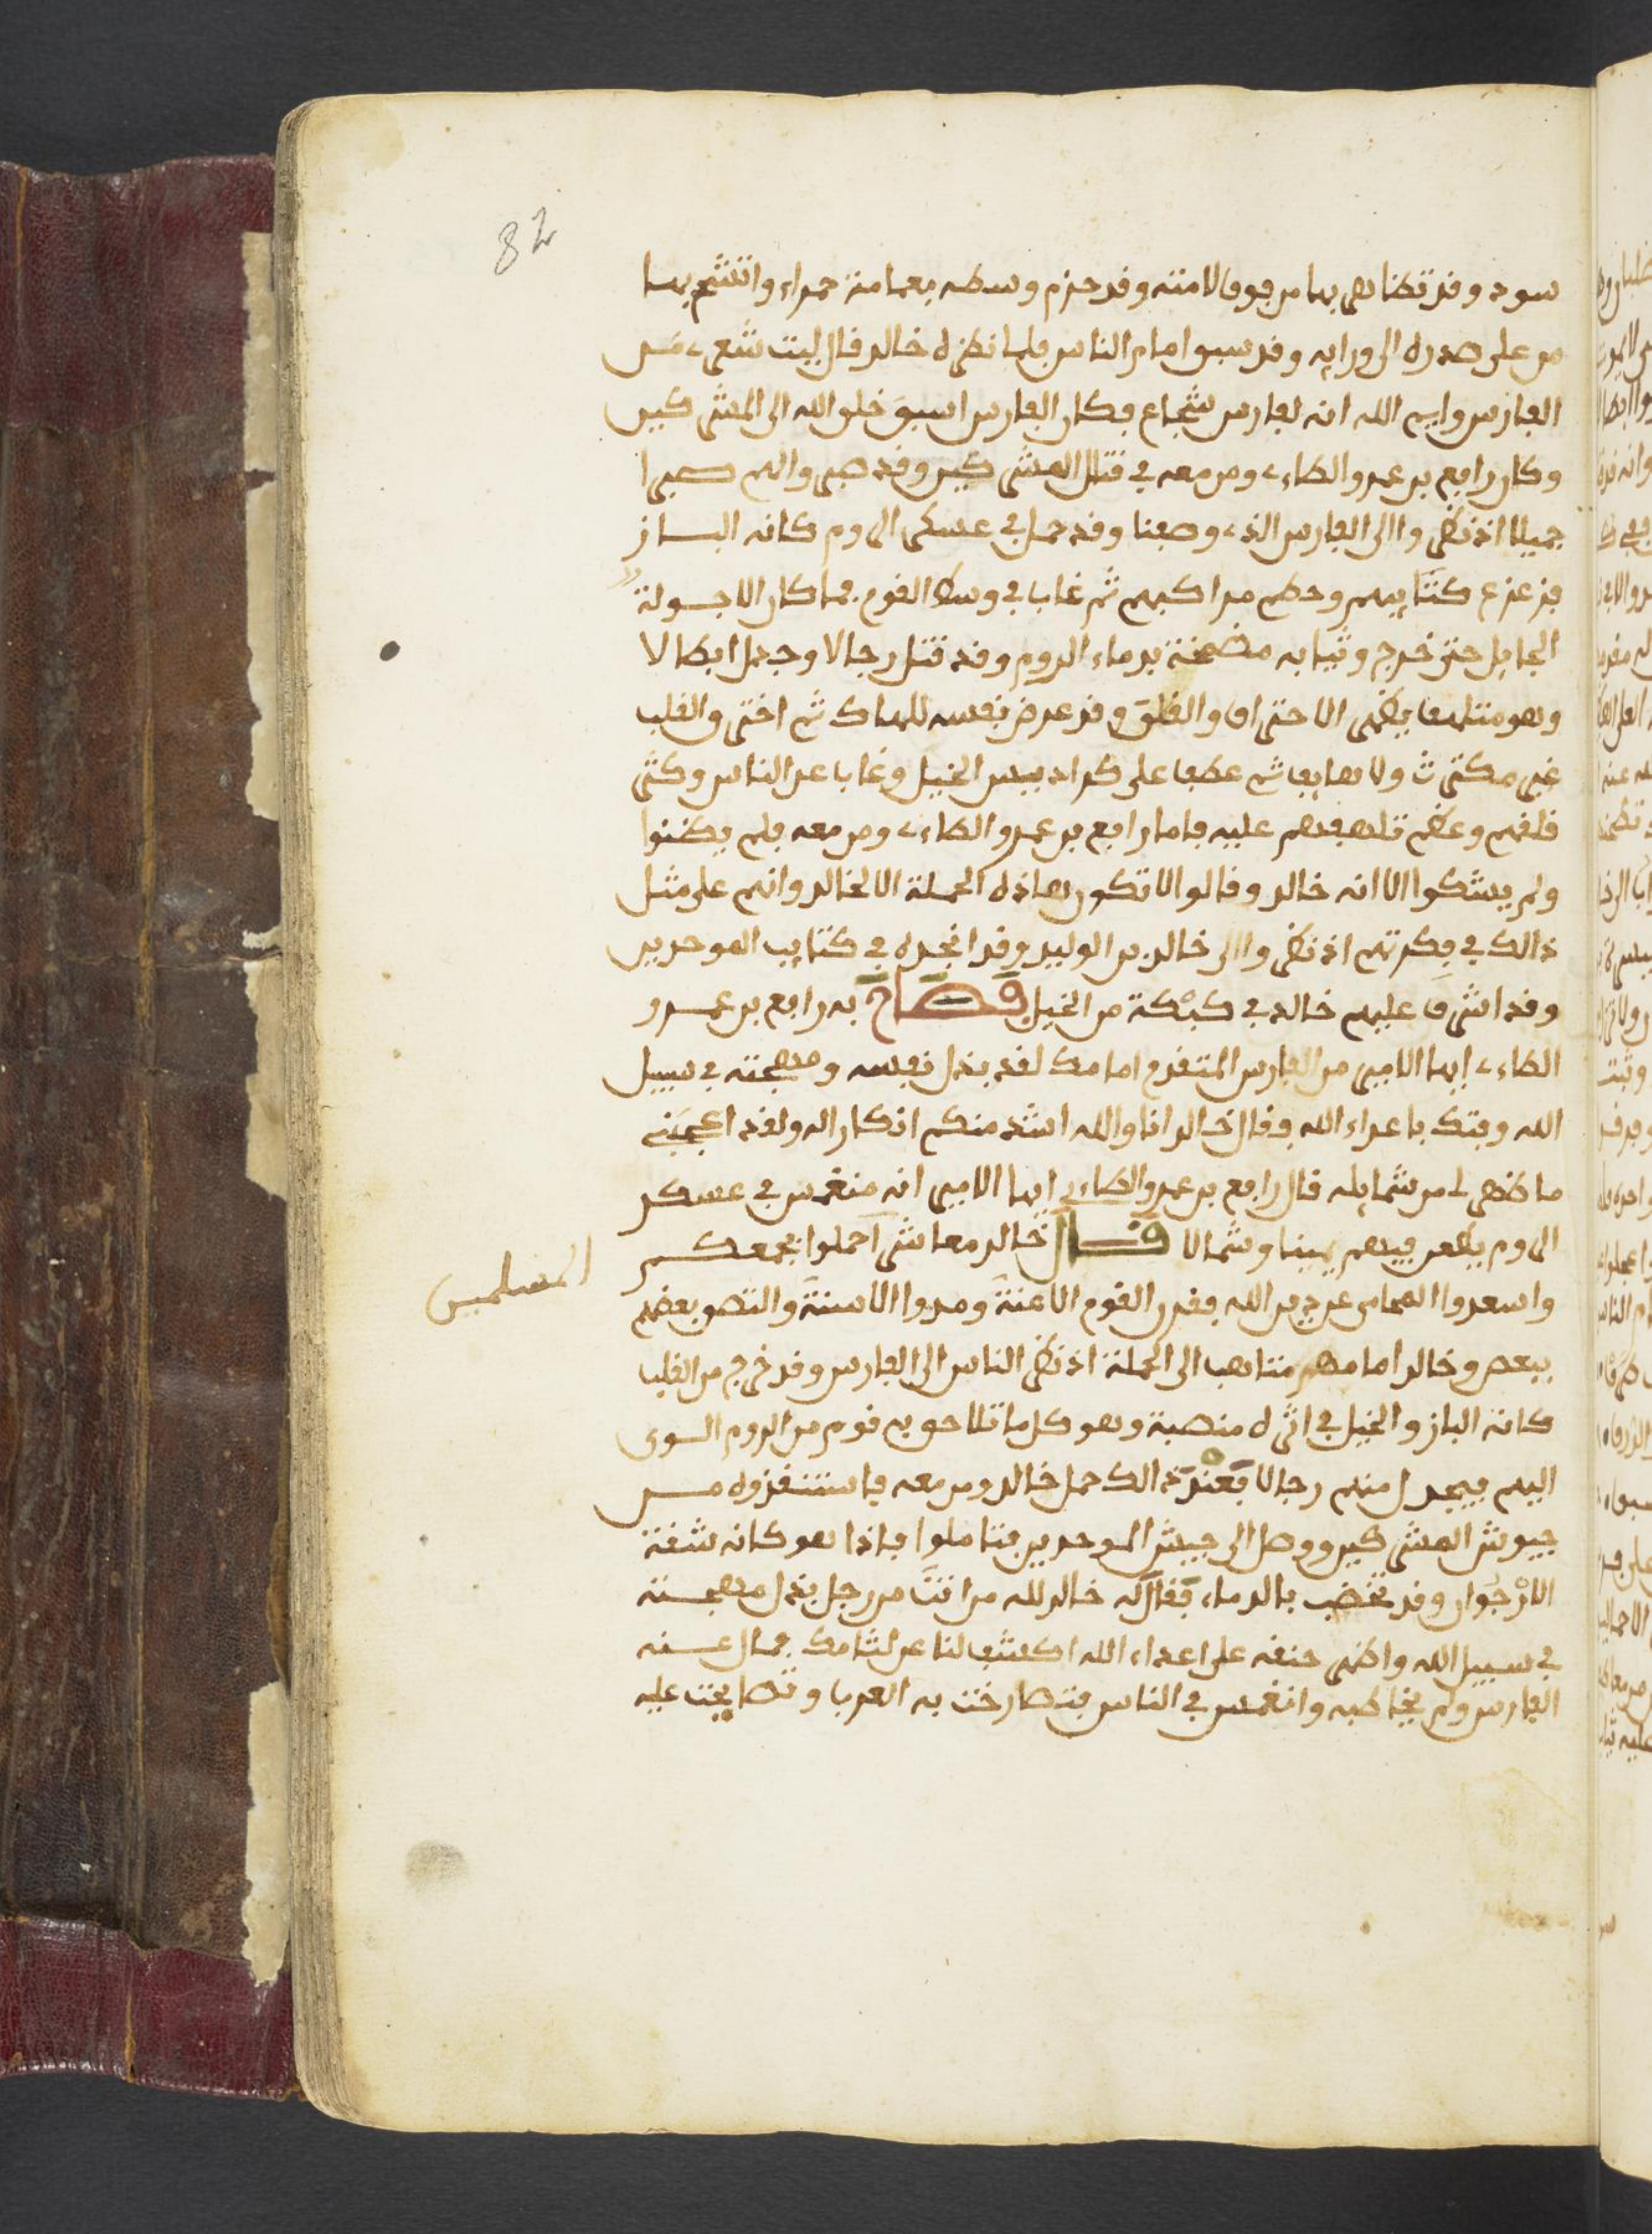 82
سود وقد تظاهر بها من فوق لامته وقد حزم وسطه بعمامة حمراء واتشح بها
من على صدره الى ورايه وقد سبق امام الناس فلما نظره خالد قال ليت شعرى من
الفارس وايم الله انه لفارس شجاع فكان الفارس اسبق خلق الله الى المشركين
وكان رافع بن عمرو الطاءى ومن معه في قتال المشركين وقد صبر والهم صبرا
جميلا اذ نظروا الى الفارس الذى وصفنا وقد حمل في عسكر الروم كانه الباز
فزعزع كتايبهم وحطم مراكبهم ثم غاب في وسط القوم فما كان الا جولة
الجايل حتى خرج وثيابه مضمخة بدماء الروم وقد قتل رجالا وجدل ابطالا
وهو متلهف يظهر الاحتراق والقلق وقد عرض نفسه للهلاك ثم اخترق القلب
غير مكترث ولا هايب ثم عطف على كراديس الخيل وغاب عن الناس وكثر
قلقهم وعظم تلهفهم عليه فاما رافع بن عمرو الطاءى ومن معه فلم يظنوا
ولم يشكوا الا انه خالد وقالوا لا تكون هاذه الحملة الا لخالد وانهم على مثل
ذالك في فكرتهم اذ نظروا الى خالد بن الوليد وقد انجده في كتايب الموحدين
وقد اشرف عليهم خالد في كبكة من الخيل فصاح به رافع بن عمرو
الطاءى ايها الامير من الفارس المتقدم امامك لقد بذل نفسه ومهجته في سبيل
الله وفتك باعداء الله فقال خالد انا والله اشد منكم انكارا له ولقد اعجبني
ما ظهر لى من شمايله قال رافع بن عمرو الطاءى ايها الامير انه منغمس في عسكر
الروم يطعن فيهم يمينا وشمالا فقال خالد معاشر احملوا بجمعكم
المسلمين
واسعدوا المحامى عن دين الله فقدر القوم الاعنة ومدوا الاسنة والتصق بعضهم
ببعض وخالد امامهم متاهب الى الحملة اذ نظر الناس الى الفارس وقد خرج من القلب
كانه الباز والخيل في اثره منصبة وهو كل ما تلاحق به قوم من الروم التوى
اليهم فيجدل منهم رجالا فعند ذالك حمل خالد ومن معه فاستنقذوه من
جيوش المشركين ووصل الى جيش الموحدين فتاملوا فاذا هو كانه شقة
الارجوان وقد تخضب بالدماء فقال له خالد لله من انت من رجل بذل مهجته
في سبيل الله واظهر حنقه على اعداء الله اكشف لنا عن لثامك فمال عنه
الفارس ولم يخاطبه وانغمس في الناس فتصارخت به العرب وتصايحت عليه